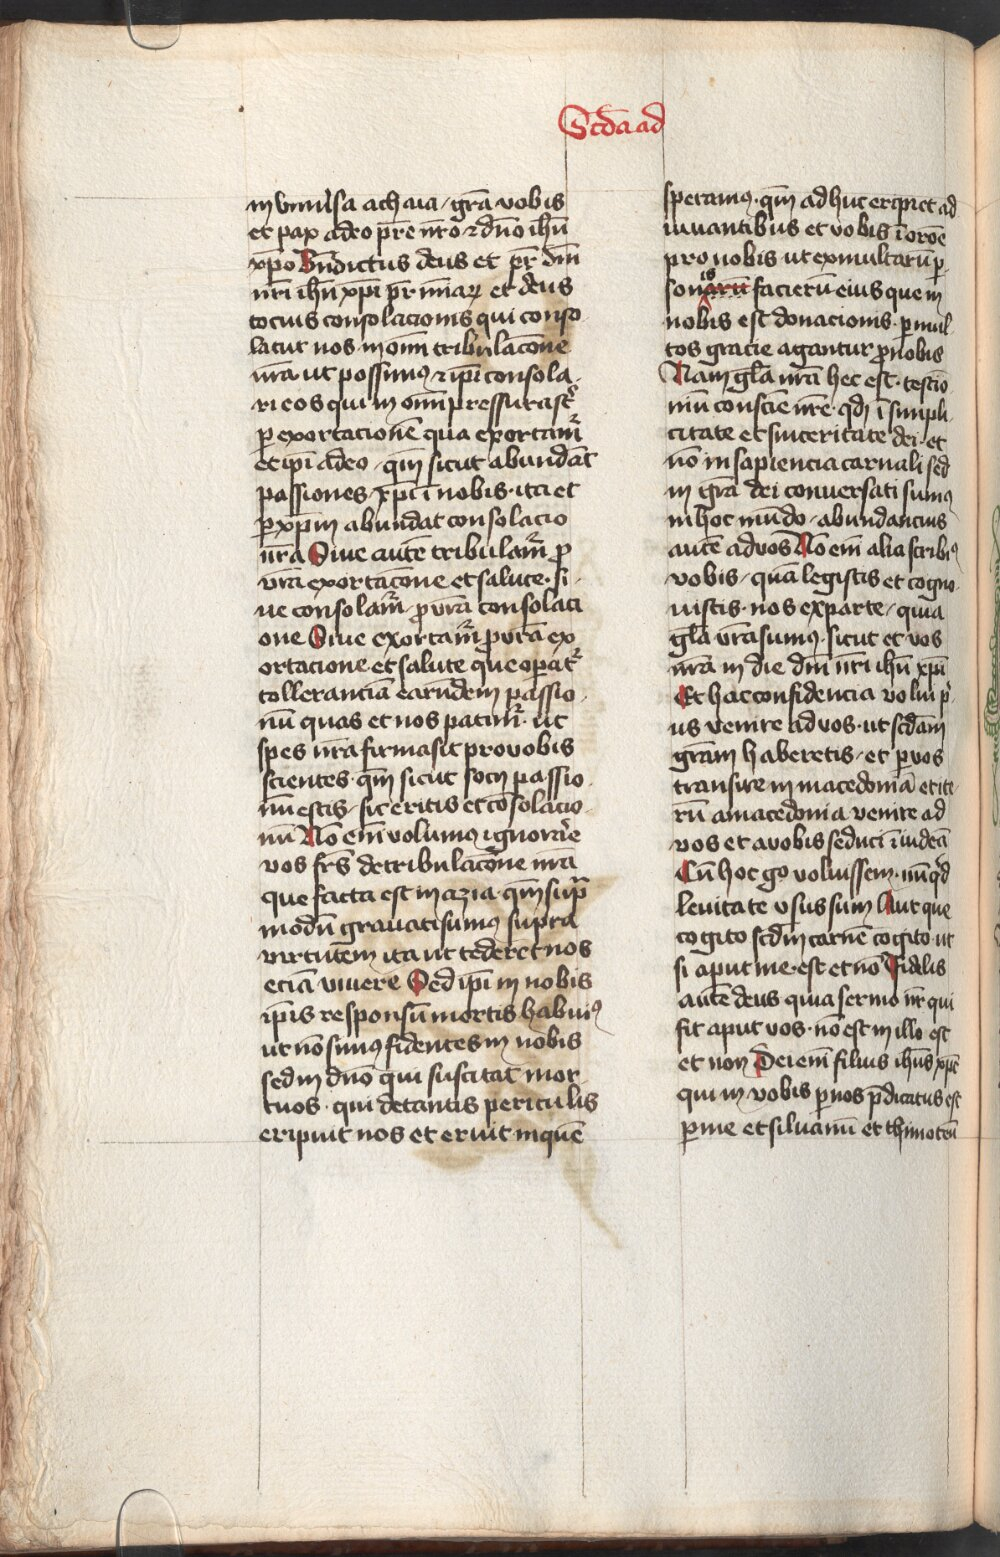 Scd̄a ad
in vniu̕sa achaia / grā vobis
et pax a deo pr̄e nr̄o ⁊ dn̄o ihū
xp̄o Bn̄dictus deus et pr̄ dn̄i
nr̄i ihū xp̄i pr̄ mīaꝝ et deus
tocius consolacionis qui conso
latur nos in om̄i tribulac̄one
nr̄a ut possimꝰ ⁊ ip̄i consola
ri eos qui in om̄i pressura st̕
ꝑ exortacionē qua exortam̕
et ip̄i a deo / qm̄ sicut abundāt
passiones xp̄i ī nobis · ita et
ꝑ xp̄m abundat consolacio
nr̄a Siue autē tribulam̕ ꝓ
vr̄a exortac̄one et salute · si
ue consolam̕ / ꝓ vr̄a consolaci
one Siue exortam̕ ꝓ vr̄a ex
ortacione et salute que oꝑat̕
tolleranciā earūdem passio
nū quas et nos patim̕ · ut
spes nr̄a firma sit pro vobis
scientes · qm̄ sicut socij passio
nū estis / sic eritis et cōsolacio
nū No em̄ volumꝰ ignorar̕e
vos frs̄ de tribulac̄one nr̄a
que facta est in azia · qm̄ supᷓ
modū grauati sumꝰ supra
virtutem ita ut tederet nos
eciā viuere Sed ip̄i in nobis
ip̄is responsū mortis habuiꝰ
ut nō simꝰ fidentes in nobis
sed in dn̄o qui suscitat mor
tuos · qui de tantis periculis
eripuit nos et eruit in quē
speramꝰ · qm̄ adhuc eripiet ad
iuuantibus et vobis ī orōe
pro nobis · ut ex multarū ꝑ
sonis facierū eius que in
nobis est donacionis · ꝑ mul
tos gracie agantur ꝓ nobis
Nam gl̄a nr̄a hec est · testīo
niū consciē nr̄e · qd̄ ī simpli
citate et sinceritate dei · et
nō in sapiencia carnali sed
in grā dei conuersati sumꝰ
in hoc mūdo / abundancius
autē ad vos No em̄ alia scribiꝰ
vobis / quā legistis et cogno
uistis · nos ex parte / quia
gl̄a vr̄a sumꝰ · sicut et vos
nr̄a in die dn̄i nr̄i ihū xp̄i
Et hac confidencia volui p̕
us venire ad vos · ut scd̄am
grām haberetis / et ꝑ vos
transire in macedoniā et ite
rū a macedonia venire ad
vos et a vobis deduci ī iudeā
Cū hoc go voluissem · nūqd̕
leuitate vsus sum Aut que
cogito scd̄m carnē cogito · ut
si aput me · est et nō Fidelis
autē deus quia sermo nr̄ qui
fit aput vos · nō est in illo est
et non Dei em̄ filius ihūs xp̄c
qui in vobis ꝑ nos p̄dicatus est
ꝑ me et siluanū et thimoteū